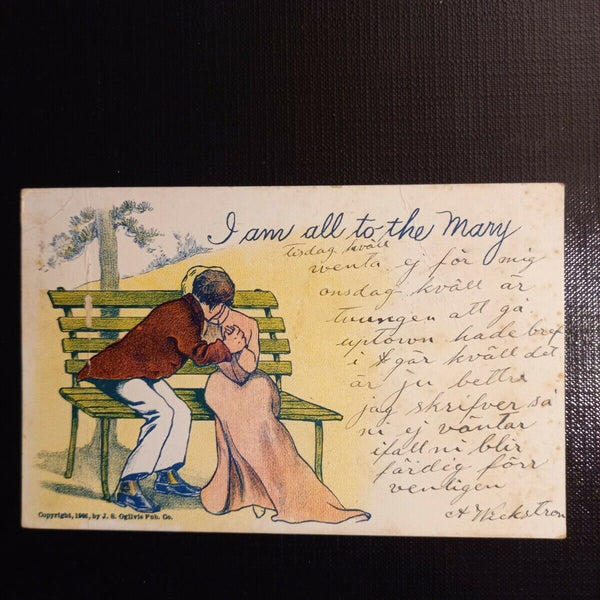 I am all to the Mary
tisdag kväll
wenta ej för mig
onsdag kväll är
tvungen att gå
uptown hade bref
i går kväll det
är ju bettre
jag skrifver så
ni ej väntar
ifall ni blir
färdig förr
venligen
A Wickstrom
Copyright, 1906, by J. S. Ogilvie Pub. Co.